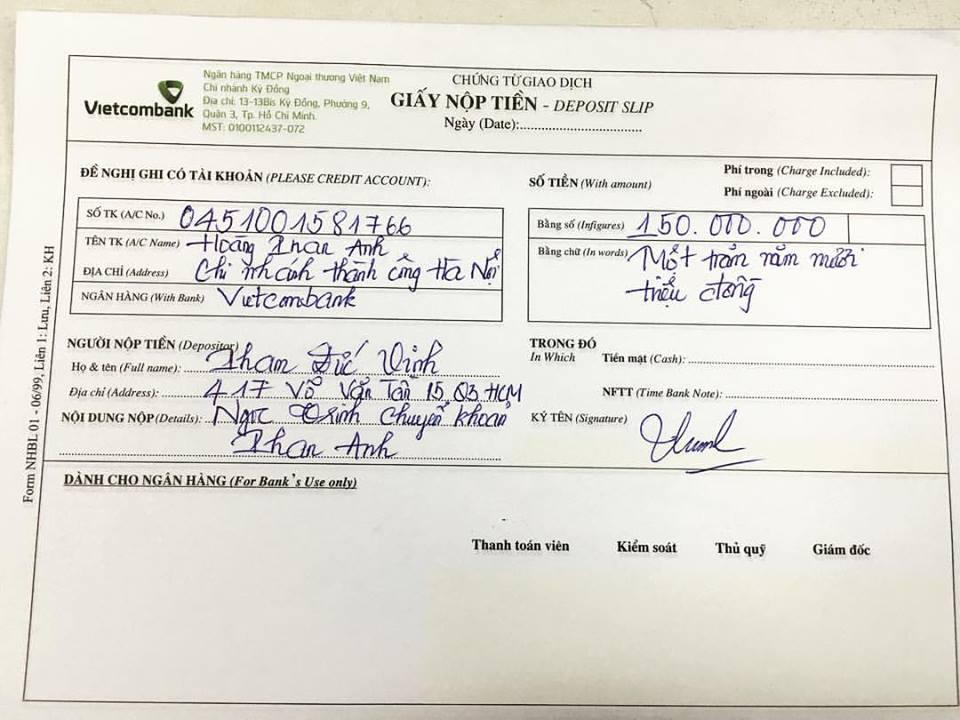 Vietcombank
Ngân hàng TMCP Ngoại thương Việt Nam
Chi nhánh Kỳ Đồng
Địa chỉ: 13-13Bis Kỳ Đồng, Phường 9,
Quận 3, Tp. Hồ Chí Minh.
MST: 0100112437-072
CHỨNG TỪ GIAO DỊCH
GIẤY NỘP TIỀN - DEPOSIT SLIP
Ngày (Date):
ĐỀ NGHỊ GHI CÓ TÀI KHOẢN (PLEASE CREDIT ACCOUNT):
SỐ TK (A/C No.) 0451001581766
TÊN TK (A/C Name) Hoàng Phan Anh
ĐỊA CHỈ (Address) Chi nhánh thành công Hà Nội
NGÂN HÀNG (With Bank) Vietcombank
SỐ TIỀN (With amount)
Phí trong (Charge Included):
Phí ngoài (Charge Excluded):
Bằng số (Infigures) 150.000.000
Bằng chữ (In words) Một trăm năm mươi
triệu đồng
NGƯỜI NỘP TIỀN (Depositor)
Họ & tên (Full name): Phan Đức Vinh
Địa chỉ (Address): 417 Võ Văn Tần P5 Q3 HCM
NỘI DUNG NỘP (Details): Ngọc Trinh chuyển khoản
Phan Anh
TRONG ĐÓ
In Which Tiền mặt (Cash):
NFTT (Time Bank Note):
KÝ TÊN (Signature)
DÀNH CHO NGÂN HÀNG (For Bank's Use only)
Thanh toán viên Kiểm soát Thủ quỹ Giám đốc
Form NHBL 01 - 06/99, Liên 1: Lưu, Liên 2: KH